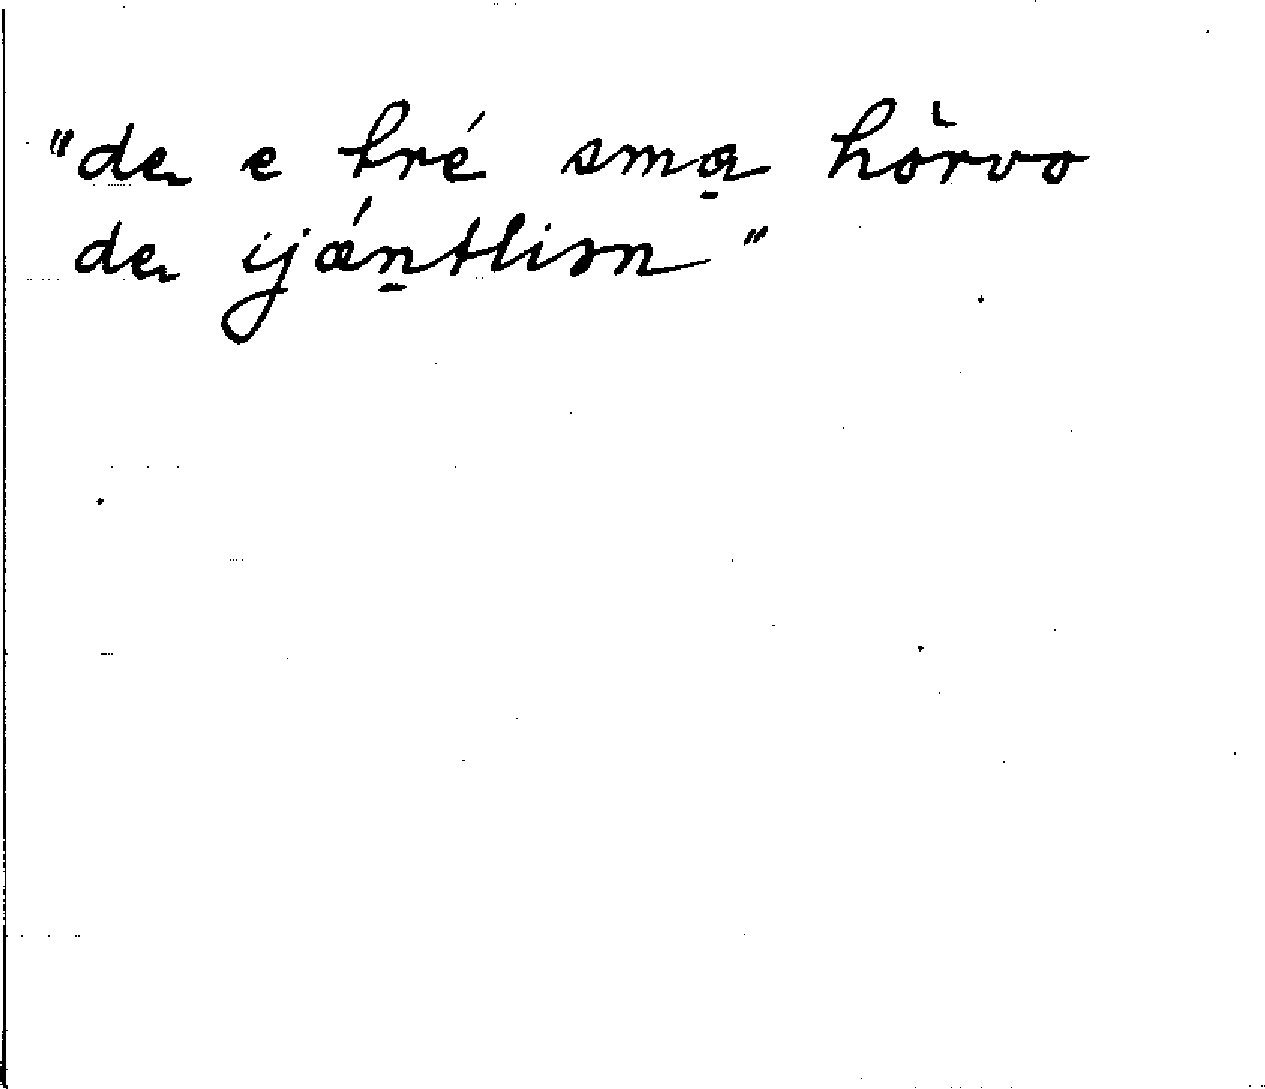 "de e tré sma̱ hŏrvo
de ijǽṉtlisn"